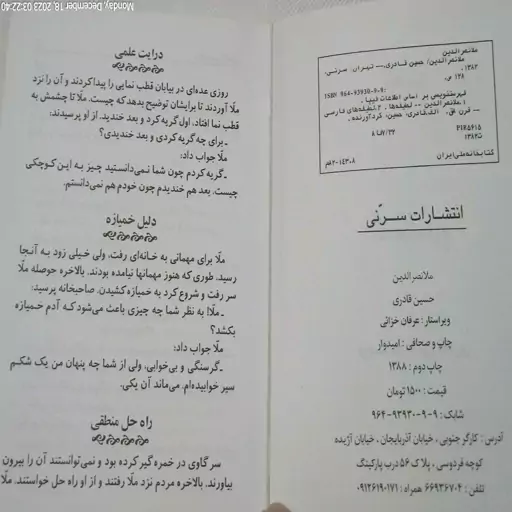 Monday, December 18, 2023 03:22:40
ملانصرالدین
ملانصرالدین/ حسین قادری.-- تهران: سرنی،
۱۳۸۲.
۱۲۸ ص.
ISBN 964-93930-9-9:
فهرستنویسی بر اساس اطلاعات فیپا.
۱. ملانصرالدین -- لطیفه‌ها. ۲. لطیفه‌های فارسی
-- قرن ۱۴. الف. قادری، حسین، گردآورنده.
۸ فا۷/۲۲
PIR
۱۳۸۲
کتابخانه ملی ایران
۸۲-۱۴۳۰۸م
انتشارات سرنی
ملانصرالدین
حسین قادری
ویراستار : عرفان خزائی
چاپ و صحافی : امیدوار
چاپ دوم : ۱۳۸۸
قیمت : ۱۵۰۰ تومان
شابک : ۹-۹-۹۳۹۳۰-۹۶۴
آدرس : کارگر جنوبی ، خیابان آذربایجان ، خیابان آژیده
کوچه فردوسی ، پلاک ۵۶ درب پارکینگ
تلفن : ۶۶۹۳۶۷۰۴ همراه : ۰۹۱۲۶۱۹۰۱۷۱
درایت علمی
روزی عده‌ای در بیابان قطب نمایی را پیدا کردند و آن را نزد
ملا آوردند تا برایشان توضیح بدهد که چیست. ملا تا چشمش به
قطب نما افتاد، اول گریه کرد و بعد خندید. از او پرسیدند:
ـ برای چه گریه کردی و بعد خندیدی؟
ملا جواب داد:
ـ گریه کردم چون شما نمی‌دانستید چیز به این کوچکی
چیست. بعد هم خندیدم چون خودم هم نمی‌دانستم.
دلیل خمیازه
ملا برای مهمانی به خانه‌ای رفت، ولی خیلی زود به آنجا
رسید. طوری که هنوز مهمانها نیامده بودند. بالاخره حوصله ملا
سر رفت و شروع کرد به خمیازه کشیدن. صاحبخانه پرسید:
ـ ملا! به نظر شما چه چیزی باعث می‌شود که آدم خمیازه
بکشد؟
ملا جواب داد:
ـ گرسنگی و بی‌خوابی، ولی از شما چه پنهان من یک شکم
سیر خوابیده‌ام. می‌ماند آن یکی.
راه حل منطقی
سر گاوی در خمره گیر کرده بود و نمی‌توانستند آن را بیرون
بیاورند. بالاخره مردم نزد ملا رفتند و از او راه حل خواستند. ملا